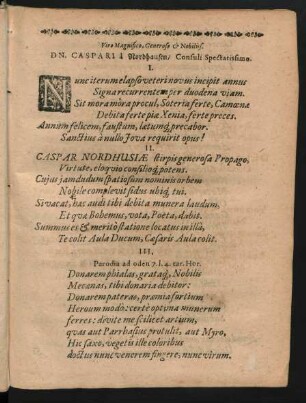 Viro Magnifico, Generoso & Nobiliss.
DN. CASPARI à Nordhausen, Consuli Spectatissimo.
I.
Nunc iterum elapso veteri novus incipit annus
Signa recurrente per duodena viam.
Sit mora mora procul, Soteria ferte, Camœnæ
Debita ferte pia Xenia, ferte preces.
Annum felicem, faustum, lætumq; precabor.
Sanctius à nullo Jova requirit opus!
II.
CASPAR NORDHUSIÆ stirpis generosa Propago,
Virtute, eloquio consilioq; potens.
Cujus jamdudum spatiosum nominis orbem
Nobile complevit sidus ubiq; tui.
Si vacat, has audi tibi debita munera laudum,
Et quæ Bohemus, vota, Poëta, dabit.
Summus es & meritò statione locatus in illâ,
Te colit Aula Ducum, Cæsaris Aula colit.
III.
Parodia ad oden 7. l. 4. car. Hor.
Donarem phialas, grataq;, Nobilis
Mecœnas, tibi donaria debitor:
Donarem pateras, præmia furtium
Heroum modò: certè optima munerum
ferres: divite me scilicet artium,
quas aut Parrhasius protulit, aut Myro,
Hic saxo, vegetis ille coloribus
doctus nunc venerem fingere, nunc virum.